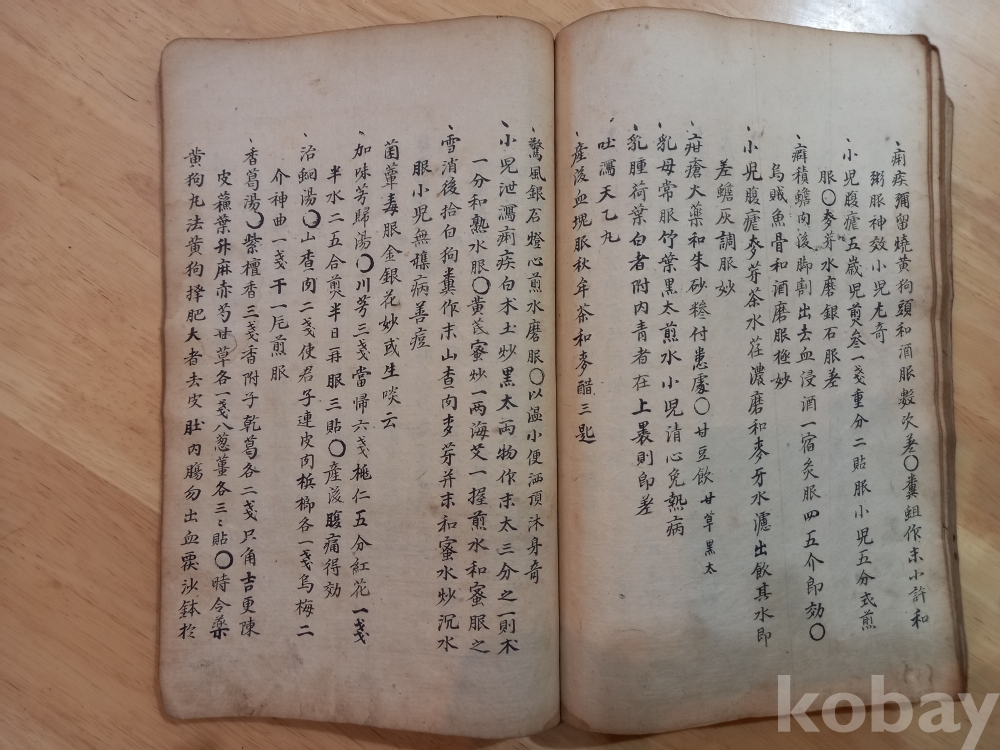 、痢疾彌留燒黃狗頭和酒服數次差〇糞蛆作末小許和
粥服神效小児尤奇
、小児腹瘧五歲児煎叄一戔重分二貼服小児五分式煎
服〇麥芽水磨銀石服差
、癖積蟾肉後脚割出去血浸酒一宿炙服四五介即効〇
烏賊魚骨和酒磨服極妙
、小児腹瘧麥芽茶水荏濃磨和麥牙水濾出飮其水即
差蟾灰調服妙
、疳瘡大藥和朱砂糝付患處〇甘豆飮甘草黑太
、乳母常服竹葉黑太煎水小児清心免熱病
、乳腫荷葉白者附內青者在上裹則即差
吐瀉天乙丸
、產後血塊服秋牟茶和麥醋三匙
、驚風銀石燈心煎水磨服〇以溫小便洒頂沐身奇
、小児泄瀉痢疾白朮土炒黑太両物作末太三分之一則朮
一分和熟水服〇黃芪蜜炒一両海艾一握煎水和蜜服之
、雪消後拾白狗糞作末山査肉麥芽并末和蜜水炒沉水
服小児無雜病善痘
菌蕈毒服金銀花妙或生啖云
、加味芎歸湯〇川芎三戔當帰六戔桃仁五分紅花一戔
半水二五合煎半日再服三貼〇產後腹痛得効
治蛔湯〇山査肉二戔使君子連皮肉梹榔各一戔烏梅二
介神曲一戔干一片煎服
、香葛湯〇紫檀香三戔香附子乾葛各二戔只角吉更陳
皮蘓葉升麻赤芍甘草各一戔八葱薑各三:貼〇時令藥
黃狗丸法黃狗擇肥大者去皮肚內膓勿出血累沙鉢於